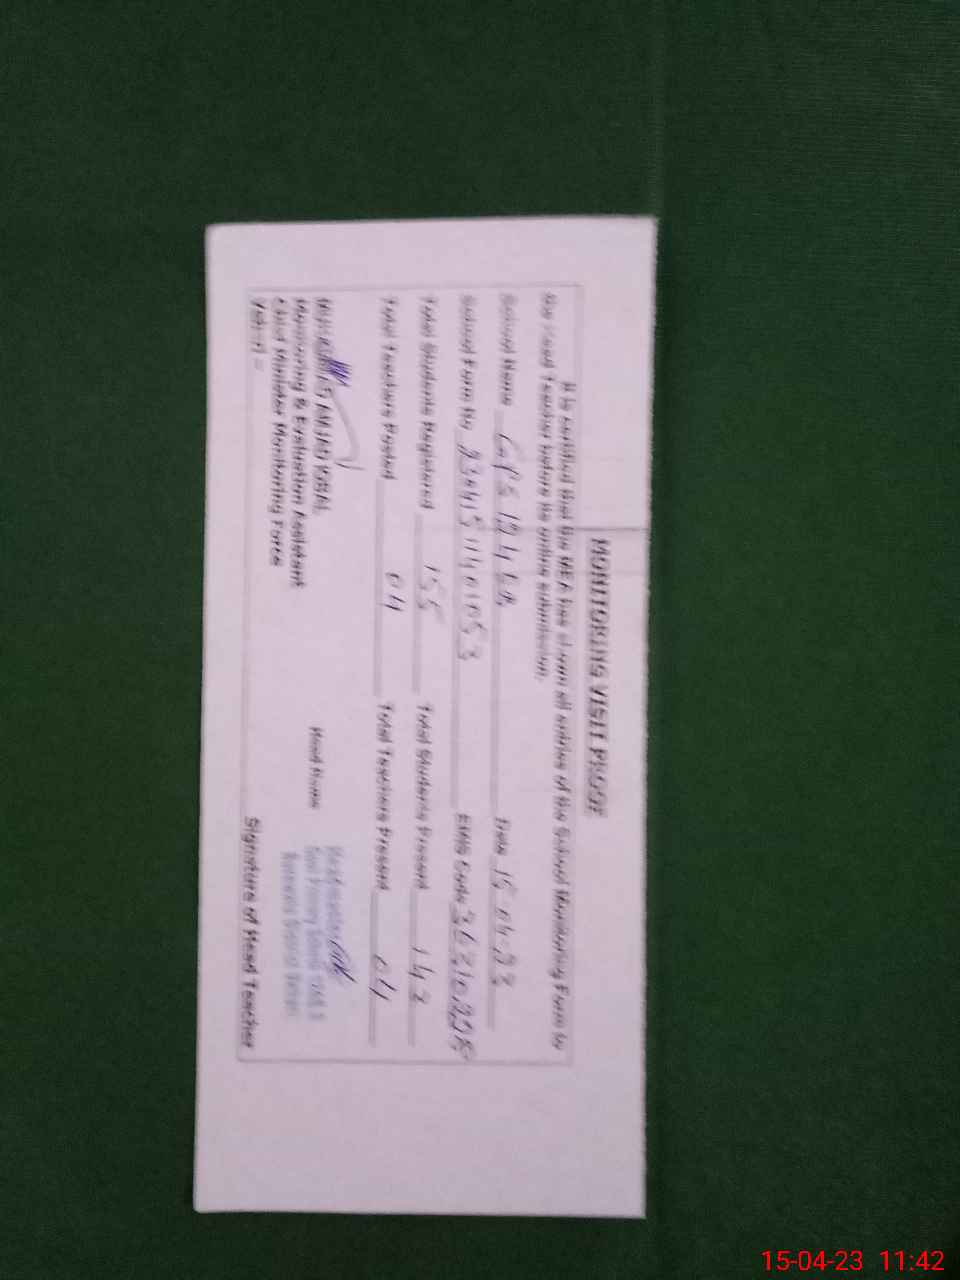 MONITORING VISIT PROOF
It is certified that the MEA has shown all entries of the School Monitoring Form to
the Head Teacher before its online submission.
School Name GPS 124 Date 15-04-23
School Form No EMIS Code
Total Students Registered 155 Total Students Present 142
Total Teachers Posted 04 Total Teachers Present 04
MUHAMMAD AMJAD IQBAL
Monitoring & Evaluation Assistant
Chief Minister Monitoring Force
Vehari
Head Name
Signature of Head Teacher
15-04-23 11:42